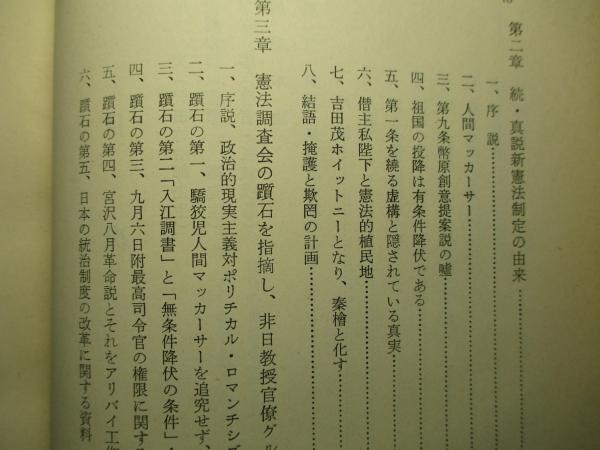 第二章 続・真説新憲法制定の由来…
一、序説…
二、人間マッカーサー…
三、第九条幣原創意提案説の嘘…
四、祖国の投降は有条件降伏である…
五、第一条を繞る虚構と隠されている真実…
六、僭主私陛下と憲法的植民地…
七、吉田茂ホイットニーとなり、秦檜と化す…
八、結語・掩護と欺罔の計画…
第三章 憲法調査会の躓石を指摘し、非日教授官僚グル
一、序説、政治的現実主義対ポリチカル・ロマンチシズ
二、躓石の第一、驕狡児人間マッカーサーを追究せず、
三、躓石の第二「入江調書」と「無条件降伏の条件」・
四、躓石の第三、九月六日附最高司令官の権限に関する
五、躓石の第四、宮沢八月革命説とそれをアリバイ工作
六、躓石の第五、日本の統治制度の改革に関する資料